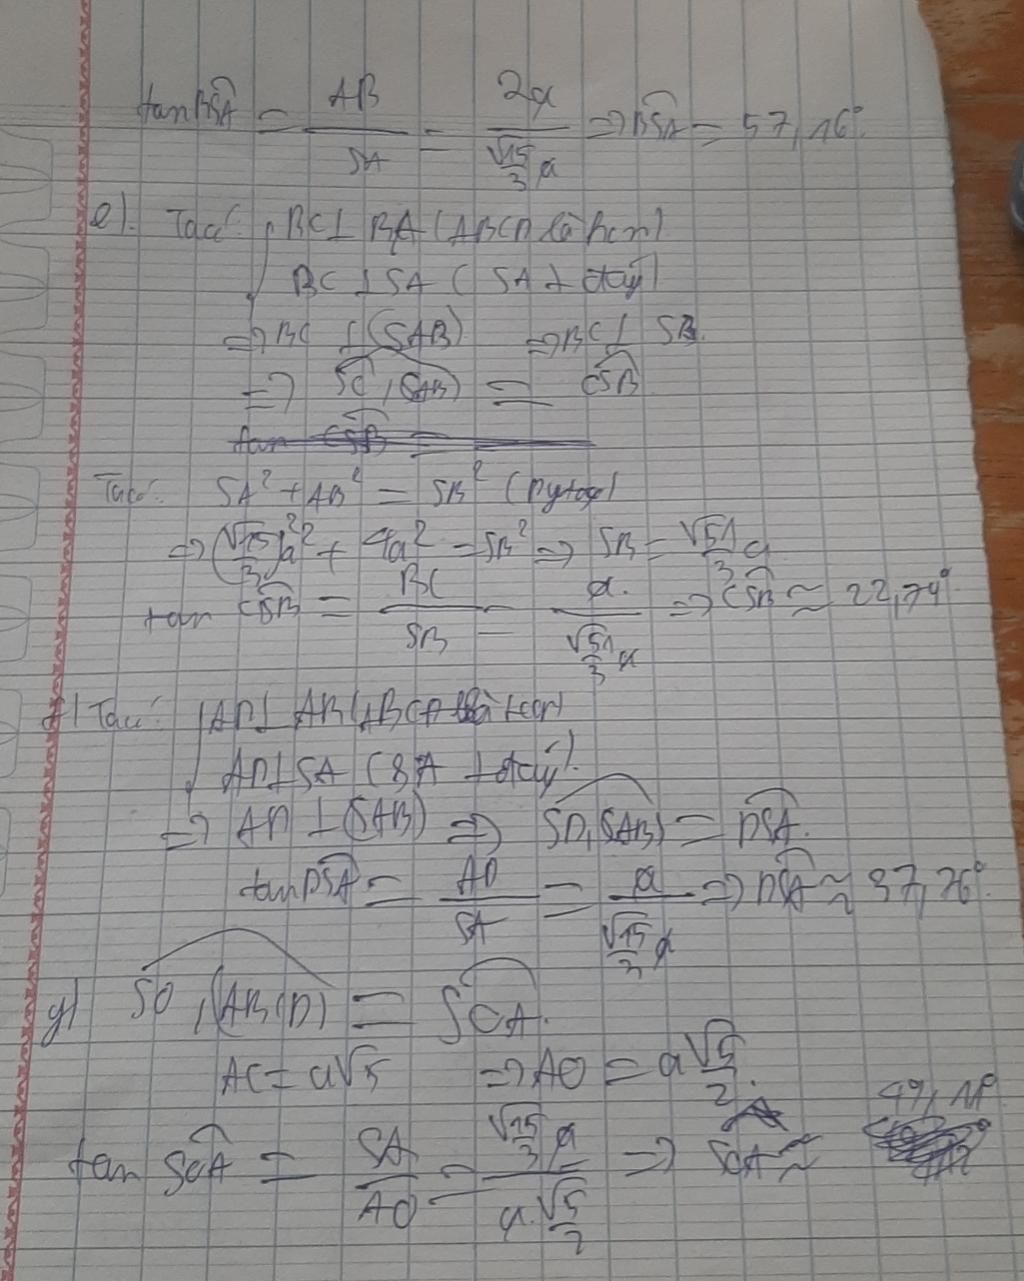 tan BSA = AB / SA = 2a / (√15/3 a) => BSA = 57,16°.
e). Ta có: BC ⊥ BA (ABCD là hcn)
BC ⊥ SA (SA ⊥ đáy)
=> BC ⊥ (SAB) => BC ⊥ SB.
=> SC, (SAB) = CSB
tan CSB =
Ta có: SA² + AB² = SB² (pytago)
=> (√15/3)a² ² + 4a² = SB² => SB = √51/3 a
tan CSB = BC / SB = a. / (√51/3 a) => CSB ≈ 22,74°
f) Ta có: AD ⊥ AB (ABCD là hcn)
AD ⊥ SA (SA ⊥ đáy).
=> AD ⊥ (SAB) => SD, (SAB) = DSA.
tan DSA = AD / SA = a / (√15/3 a) => DSA ≈ 37,76°.
g) SO, (ABCD) = SOA.
AC = a√5 => AO = a√5/2.
tan SOA = SA / AO = (√15/3 a) / (a.√5/2) => SOA ≈ 49,11°